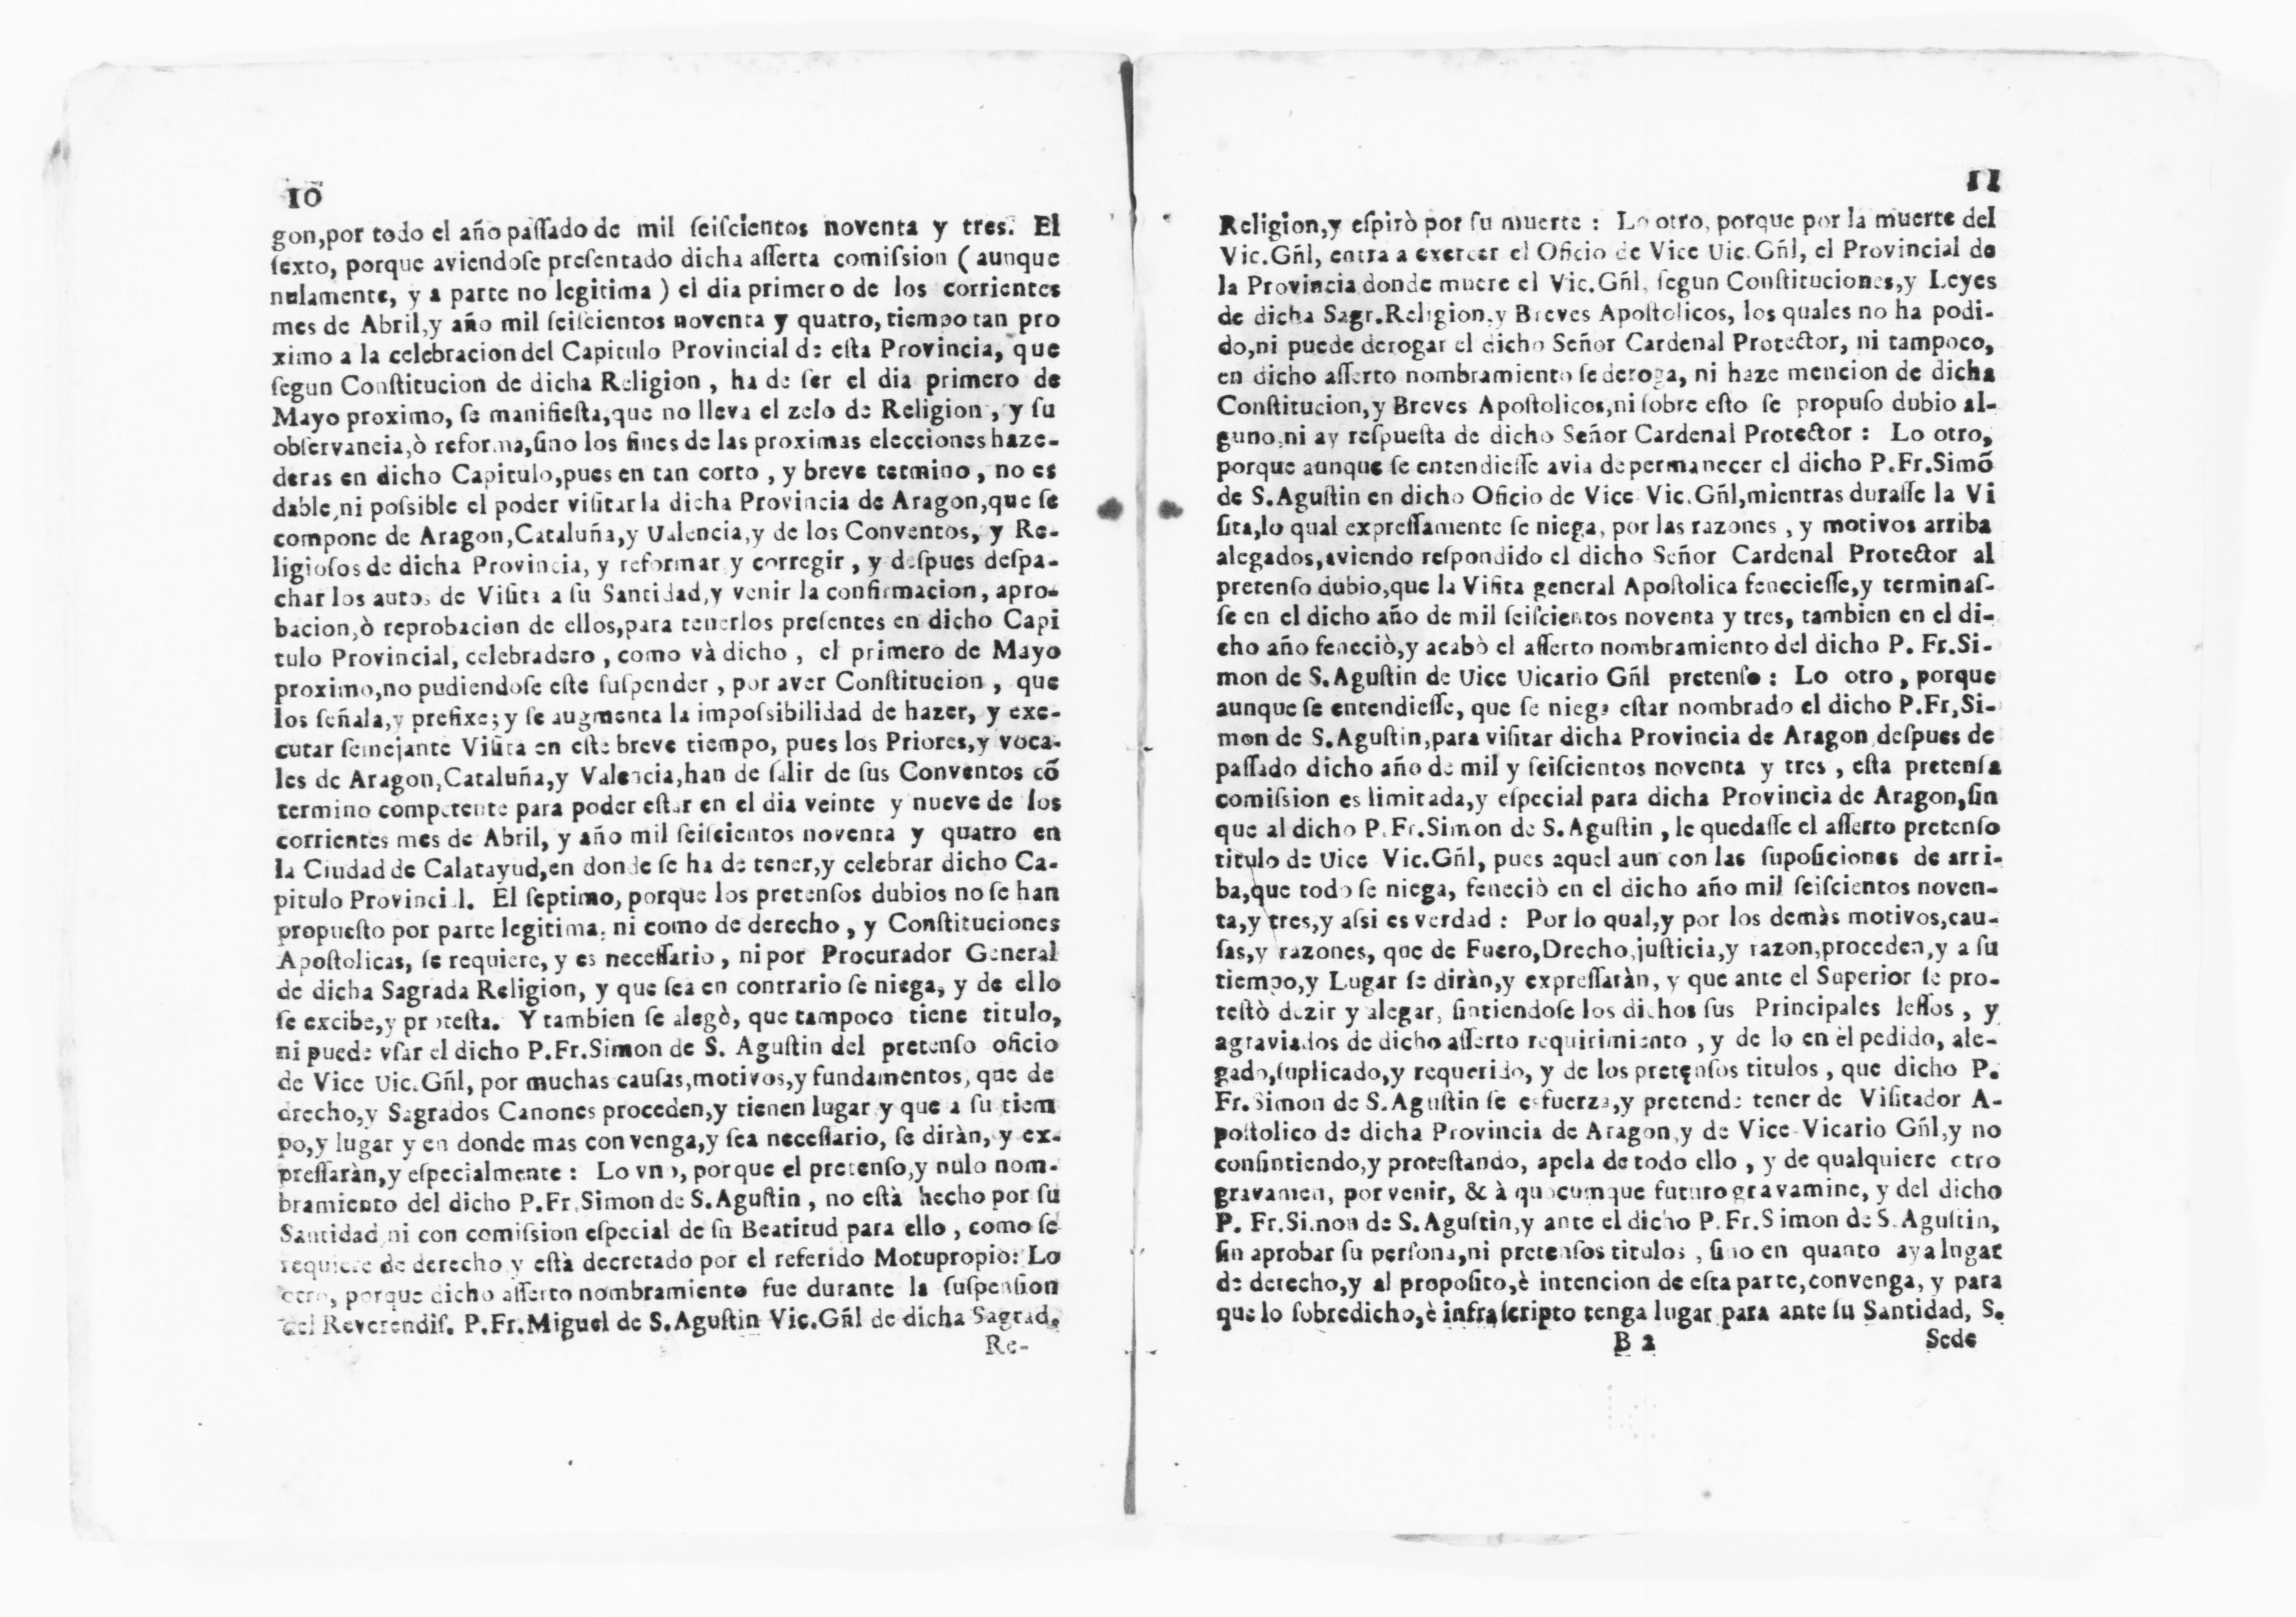 10
gon,por todo el año paſſado de mil ſeiſcientos noventa y tres. El
ſexto, porque aviendoſe preſentado dicha aſſerta comiſsion ( aunque
nulamente, y a parte no legitima ) el dia primero de los corrientes
mes de Abril,y año mil ſeiſcientos noventa y quatro, tiempo tan pro
ximo a la celebracion del Capitulo Provincial de eſta Provincia, que
ſegun Conſtitucion de dicha Religion , ha de ſer el dia primero de
Mayo proximo, ſe manifieſta,que no lleva el zelo de Religion , y ſu
obſervancia,ò reforma,ſino los fines de las proximas elecciones haze-
deras en dicho Capitulo,pues en tan corto , y breve termino , no es
dable,ni poſsible el poder viſitar la dicha Provincia de Aragon,que ſe
compone de Aragon,Cataluña,y Ualencia,y de los Conventos, y Re-
ligioſos de dicha Provincia, y reformar y corregir , y deſpues deſpa-
char los autos de Viſita a ſu Santidad,y venir la confirmacion, apro-
bacion,ò reprobacion de ellos,para tenerlos preſentes en dicho Capi
tulo Provincial, celebradero , como và dicho , el primero de Mayo
proximo,no pudiendoſe eſte ſuſpender , por aver Conſtitucion , que
los ſeñala,y prefixe; y ſe augmenta la impoſsibilidad de hazer, y exe-
cutar ſemejante Viſita en eſte breve tiempo, pues los Priores,y voca-
les de Aragon,Cataluña,y Valencia,han de ſalir de ſus Conventos cõ
termino competente para poder eſtar en el dia veinte y nueve de los
corrientes mes de Abril, y año mil ſeiſcientos noventa y quatro en
la Ciudad de Calatayud,en donde ſe ha de tener,y celebrar dicho Ca-
pitulo Provincial. El ſeptimo, porque los pretenſos dubios no ſe han
propueſto por parte legitima, ni como de derecho , y Conſtituciones
Apoſtolicas, ſe requiere, y es neceſſario , ni por Procurador General
de dicha Sagrada Religion, y que ſea en contrario ſe niega, y de ello
ſe excibe,y proteſta. Y tambien ſe alegò, que tampoco tiene titulo,
ni puede vſar el dicho P.Fr.Simon de S. Aguſtin del pretenſo oficio
de Vice Uic.Gñl, por muchas cauſas,motivos,y fundamentos, que de
drecho,y Sagrados Canones proceden,y tienen lugar y que a ſu tiem
po,y lugar y en donde mas convenga,y ſea neceſſario, ſe diràn, y ex-
preſſaràn,y eſpecialmente : Lo vno, porque el pretenſo,y nulo nom-
bramiento del dicho P.Fr.Simon de S.Aguſtin , no eſtà hecho por ſu
Santidad ni con comiſsion eſpecial de ſu Beatitud para ello , como ſe
requiere de derecho y eſtà decretado por el referido Motupropio: Lo
otro, porque dicho aſſerto nombramiento fue durante la ſuſpenſion
del Reverendiſ. P.Fr.Miguel de S.Aguſtin Vic.Gñl de dicha Sagrad.
Re-
11
Religion,y eſpirò por ſu muerte : Lo otro, porque por la muerte del
Vic.Gñl, entra a exercer el Oficio de Vice Uic.Gñl, el Provincial de
la Provincia donde muere el Vic.Gñl, ſegun Conſtituciones,y Leyes
de dicha Sagr.Religion,y Breves Apoſtolicos, los quales no ha podi-
do,ni puede derogar el dicho Señor Cardenal Protector, ni tampoco,
en dicho aſſerto nombramiento ſe deroga, ni haze mencion de dicha
Conſtitucion,y Breves Apoſtolicos,ni ſobre eſto ſe propuſo dubio al-
guno,ni ay reſpueſta de dicho Señor Cardenal Protector : Lo otro,
porque aunque ſe entendieſſe avia de permanecer el dicho P.Fr.Simõ
de S.Aguſtin en dicho Oficio de Vice Vic.Gñl,mientras duraſſe la Vi
ſita,lo qual expreſſamente ſe niega, por las razones , y motivos arriba
alegados,aviendo reſpondido el dicho Señor Cardenal Protector al
pretenſo dubio,que la Viſita general Apoſtolica fenecieſſe,y terminaſ-
ſe en el dicho año de mil ſeiſcientos noventa y tres, tambien en el di-
cho año feneciò,y acabò el aſſerto nombramiento del dicho P. Fr.Si-
mon de S.Aguſtin de Uice Uicario Gñl pretenſo : Lo otro , porque
aunque ſe entendieſſe, que ſe niega eſtar nombrado el dicho P.Fr,Si-
mon de S.Aguſtin,para viſitar dicha Provincia de Aragon deſpues de
paſſado dicho año de mil y ſeiſcientos noventa y tres , eſta pretenſa
comiſsion es limitada,y eſpecial para dicha Provincia de Aragon,ſin
que al dicho P.Fr.Simon de S.Aguſtin , le quedaſſe el aſſerto pretenſo
titulo de Uice Vic.Gñl, pues aquel aun con las ſupoſiciones de arri-
ba,que todo ſe niega, feneciò en el dicho año mil ſeiſcientos noven-
ta,y tres,y aſsi es verdad : Por lo qual,y por los demàs motivos,cau-
ſas,y razones, que de Fuero,Drecho,juſticia,y razon,proceden,y a ſu
tiempo,y Lugar ſe diràn,y expreſſaràn, y que ante el Superior ſe pro-
teſtò dezir y alegar, ſintiendoſe los dichos ſus Principales leſſos , y
agraviados de dicho aſſerto requirimiento , y de lo en èl pedido, ale-
gado,ſuplicado,y requerido, y de los pretenſos titulos , que dicho P.
Fr.Simon de S.Aguſtin ſe esfuerza,y pretende tener de Viſitador A-
poſtolico de dicha Provincia de Aragon,y de Vice-Vicario Gñl,y no
conſintiendo,y proteſtando, apela de todo ello , y de qualquiere otro
gravamen, por venir, & à quocumque futuro gravamine, y del dicho
P. Fr.Simon de S.Aguſtin,y ante el dicho P.Fr.Simon de S.Aguſtin,
ſin aprobar ſu perſona,ni pretenſos titulos , ſino en quanto aya lugar
de derecho,y al propoſito,è intencion de eſta parte,convenga, y para
que lo ſobredicho,è infraſcripto tenga lugar para ante ſu Santidad, S.
B 2
Sede